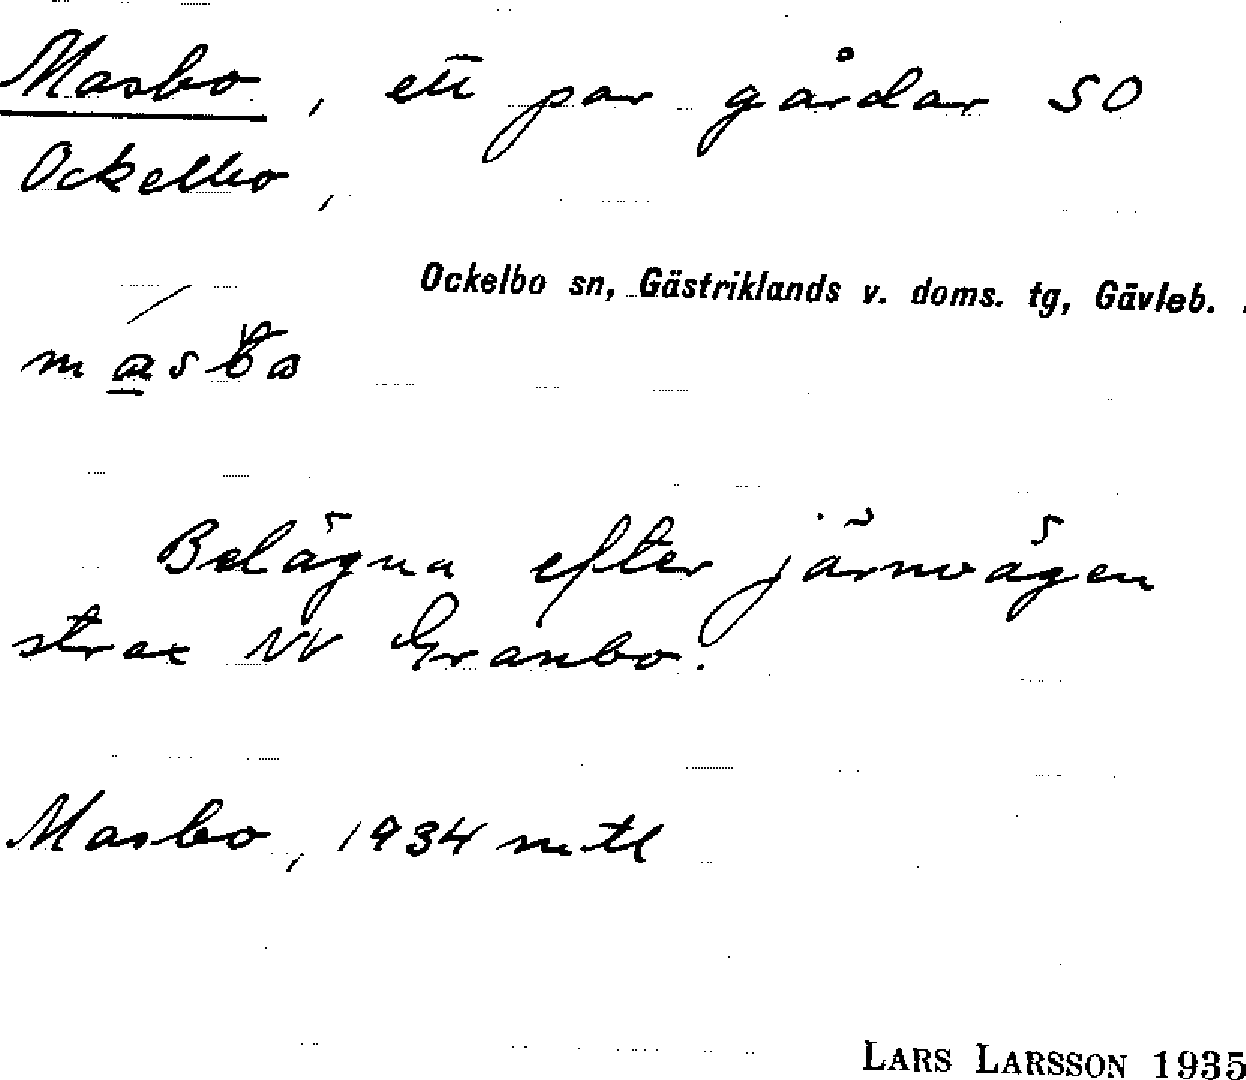 Masbo, ett par gårdar SO
Ockelbo,
Ockelbo sn, Gästriklands v. doms. tg, Gävleb.
Belägna efter järnvägen
strax W Granbo.
Masbo, 1934 mtl
LARS LARSSON 1935